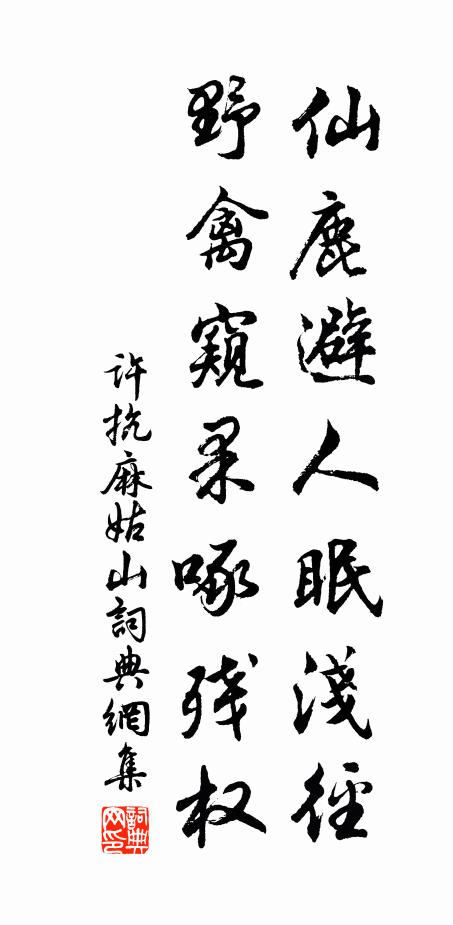 仙鹿避人眠淺徑
野禽窺果啄残权
许抗麻姑山詞典網集
詞典网印